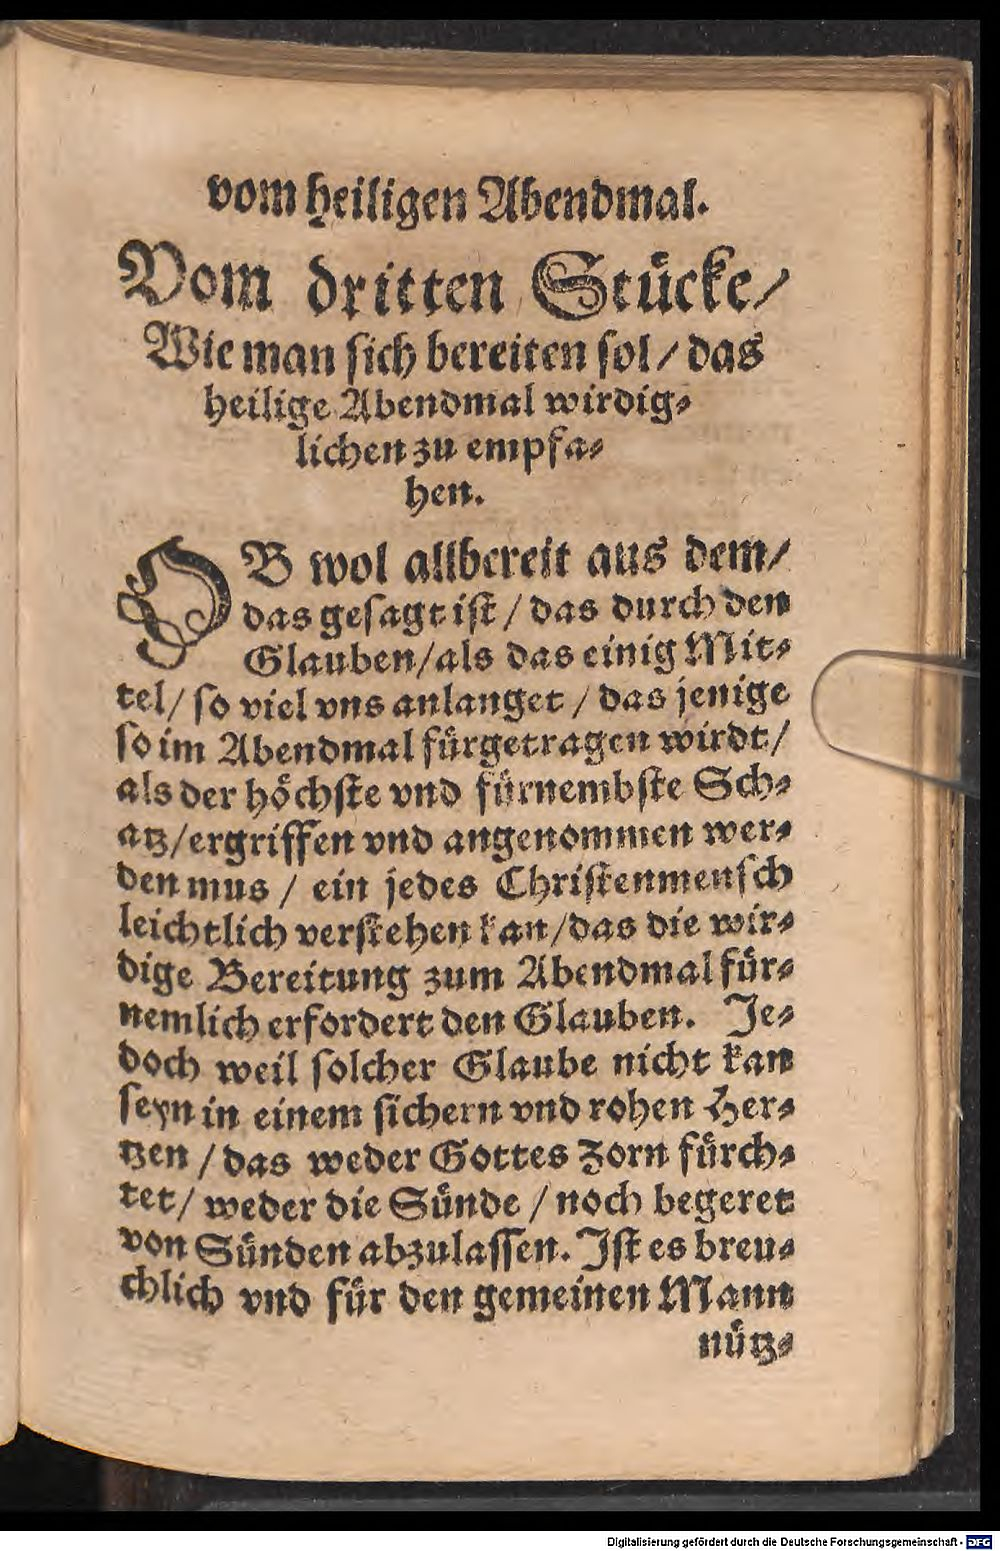 vom heiligen Abendmal.
Vom dritten Stücke/
Wie man sich bereiten sol/ das
heilige Abendmal wirdig-
lichen zu empfa-
hen.
OB wol allbereit aus dem/
das gesagt ist/ das durch den
Glauben/als das einig Mit-
tel/ so viel vns anlanget/ das jenige
so im Abendmal fürgetragen wirdt/
als der höchste vnd fürnembste Sch-
atz/ergriffen vnd angenommen wer-
den mus/ ein jedes Christenmensch
leichtlich verstehen kan/das die wir-
dige Bereitung zum Abendmal für-
nemlich erfordert den Glauben. Je-
doch weil solcher Glaube nicht kan
seyn in einem sichern vnd rohen Her-
tzen/das weder Gottes Zorn fürch-
tet/ weder die Sünde/ noch begeret
von Sünden abzulassen. Ist es breu-
chlich vnd für den gemeinen Mann
nütz-
Digitalisierung gefördert durch die Deutsche Forschungsgemeinschaft - DFG